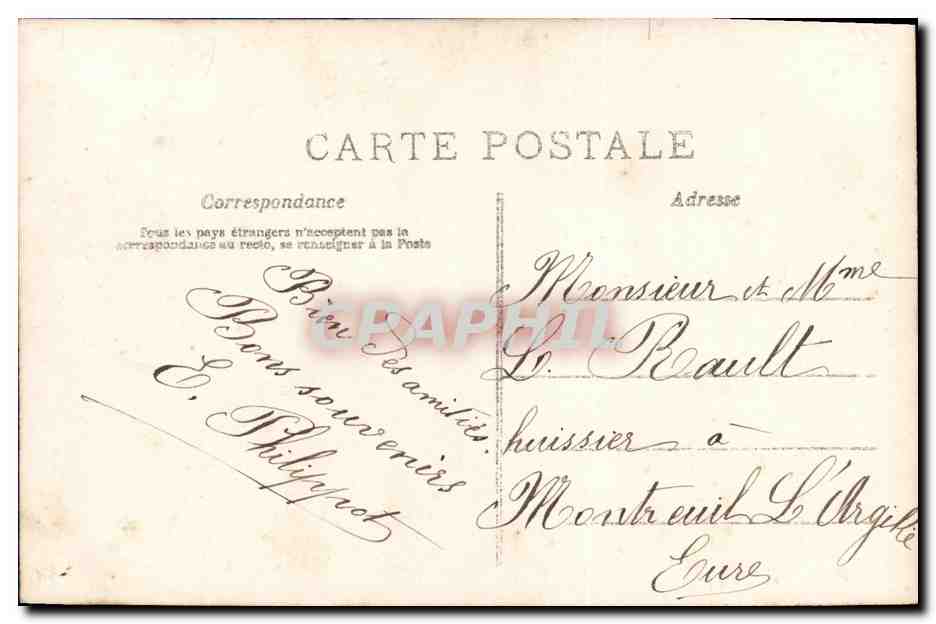 CARTE POSTALE
Correspondance
Tous les pays étrangers n'acceptent pas la
correspondance au recto, se renseigner à la Poste
Bien des amitiés.
Bons souvenirs
E. Philippot
Adresse
Monsieur et Mme
L. Rault
huissier à
Montreuil L'Argillé
Eure
CPAPHIL